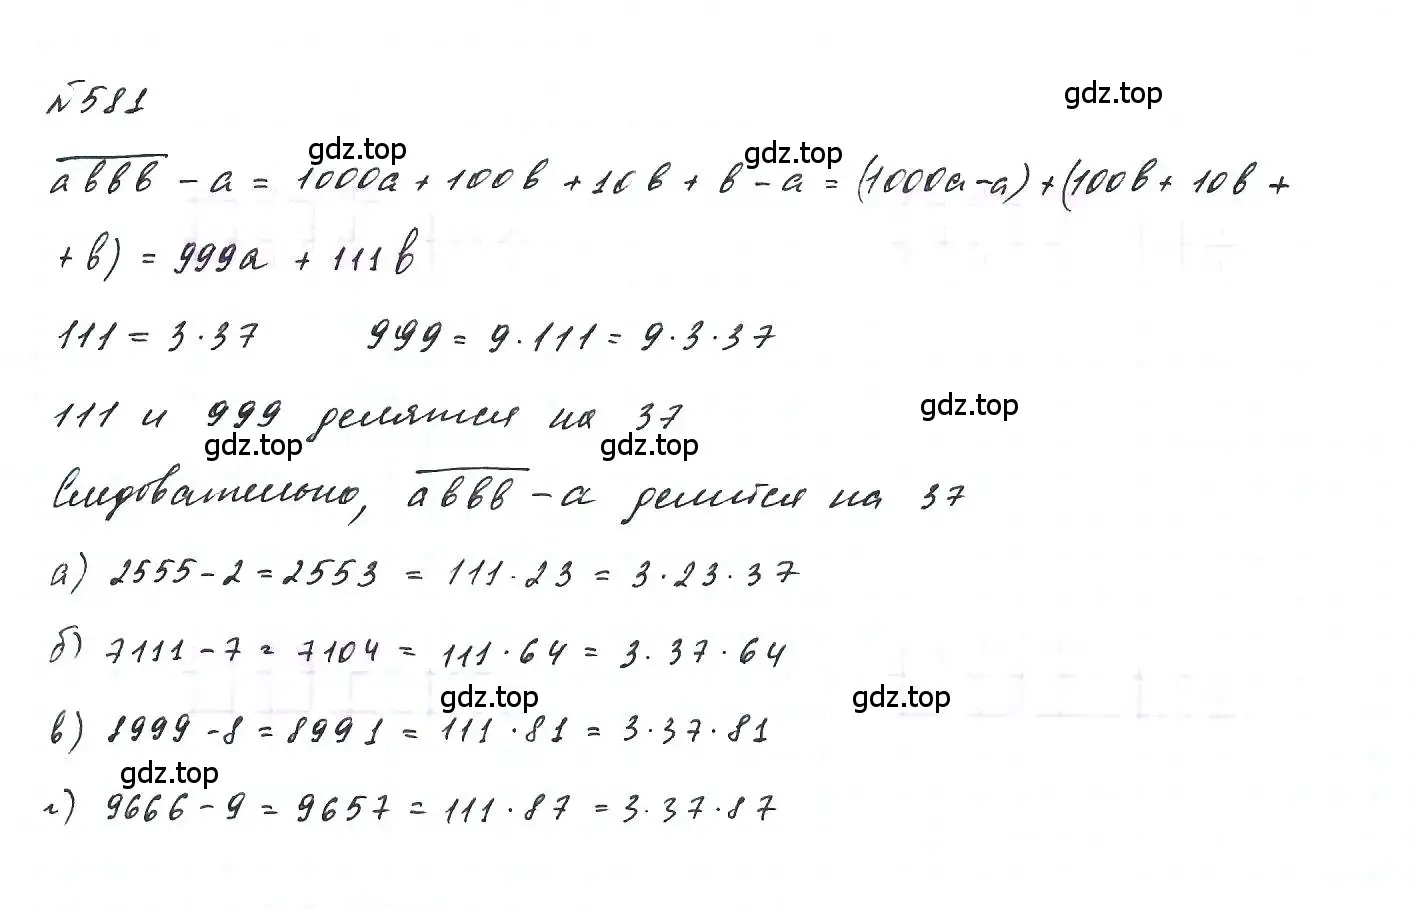 №581
gdz.top
gdz.top gdz.top
abbb - a = 1000a + 100b + 10b + b - a = (1000a - a) + (100b + 10b +
+ b) = 999a + 111b
111 = 3·37 999 = 9·111 = 9·3·37
111 и 999 делятся на 37
gdz.top
gdz.top gdz.top
Следовательно, abbb - a делится на 37
а) 2555 - 2 = 2553 = 111·23 = 3·23·37
б) 7111 - 7 = 7104 = 111·64 = 3·37·64
gdz.top gdz.top
в) 8999 - 8 = 8991 = 111·81 = 3·37·81
gdz.top
г) 9666 - 9 = 9657 = 111·87 = 3·37·87